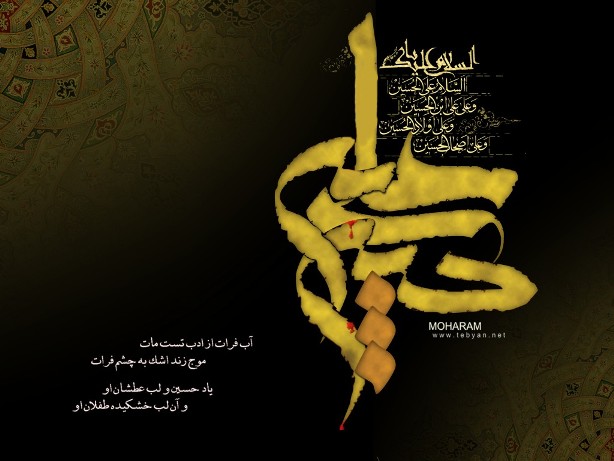 السلام علیک یا
السَّلامُ عَلَى الحُسَيْن
وَعَلى عَلِيِّ ابْنِ الحُسَيْن
وَعَلى اَوْلادِ الحُسَيْن
وَعَلى اَصْحابِ الحُسَيْن
حسین
MOHARAM
www.tebyan.net
آب فرات از ادب تست مات
موج زند اشك به چشم فرات
ياد حسين و لب عطشان او
و آن لب خشكيده طفلان او